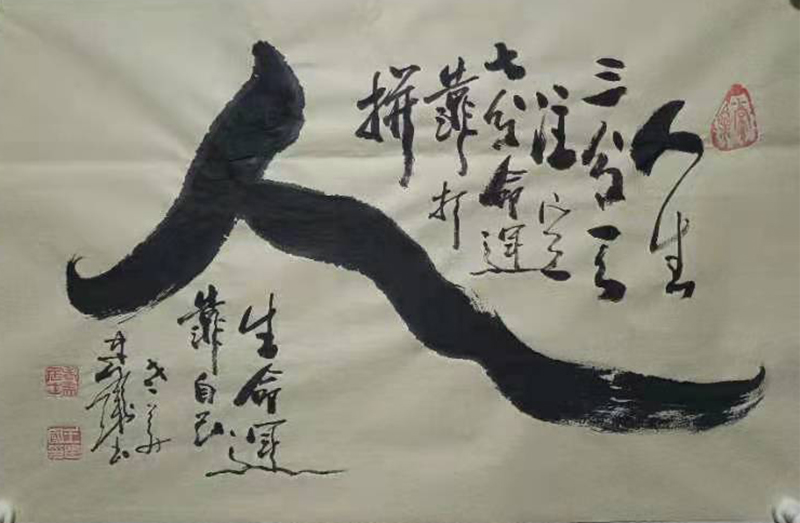 人生
三分天
注定
七分命運
靠打
拼
人
生命運
靠自己